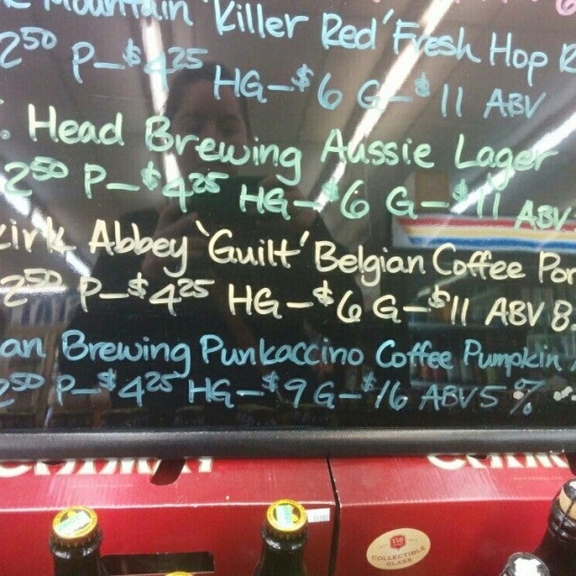 Mountain 'Killer Red' Fresh Hop R
2⁵⁰ P-$4²⁵ HG-$6 G-$11 ABV
. Head Brewing Aussie Lager
2⁵⁰ P-$4²⁵ HG-$6 G-$11 ABV
kirk Abbey 'Guilt' Belgian Coffee Por
2⁵⁰ P-$4²⁵ HG-$6 G-$11 ABV 8.
an Brewing Punkaccino Coffee Pumpkin A
2⁵⁰ P-$4²⁵ HG-$9 G-$16 ABV 5%
150
COLLECTIBLE
GLASS